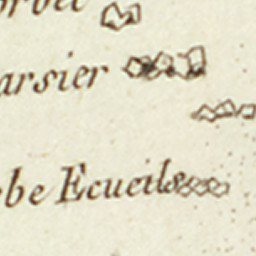 orbet
arsier
be Ecueils